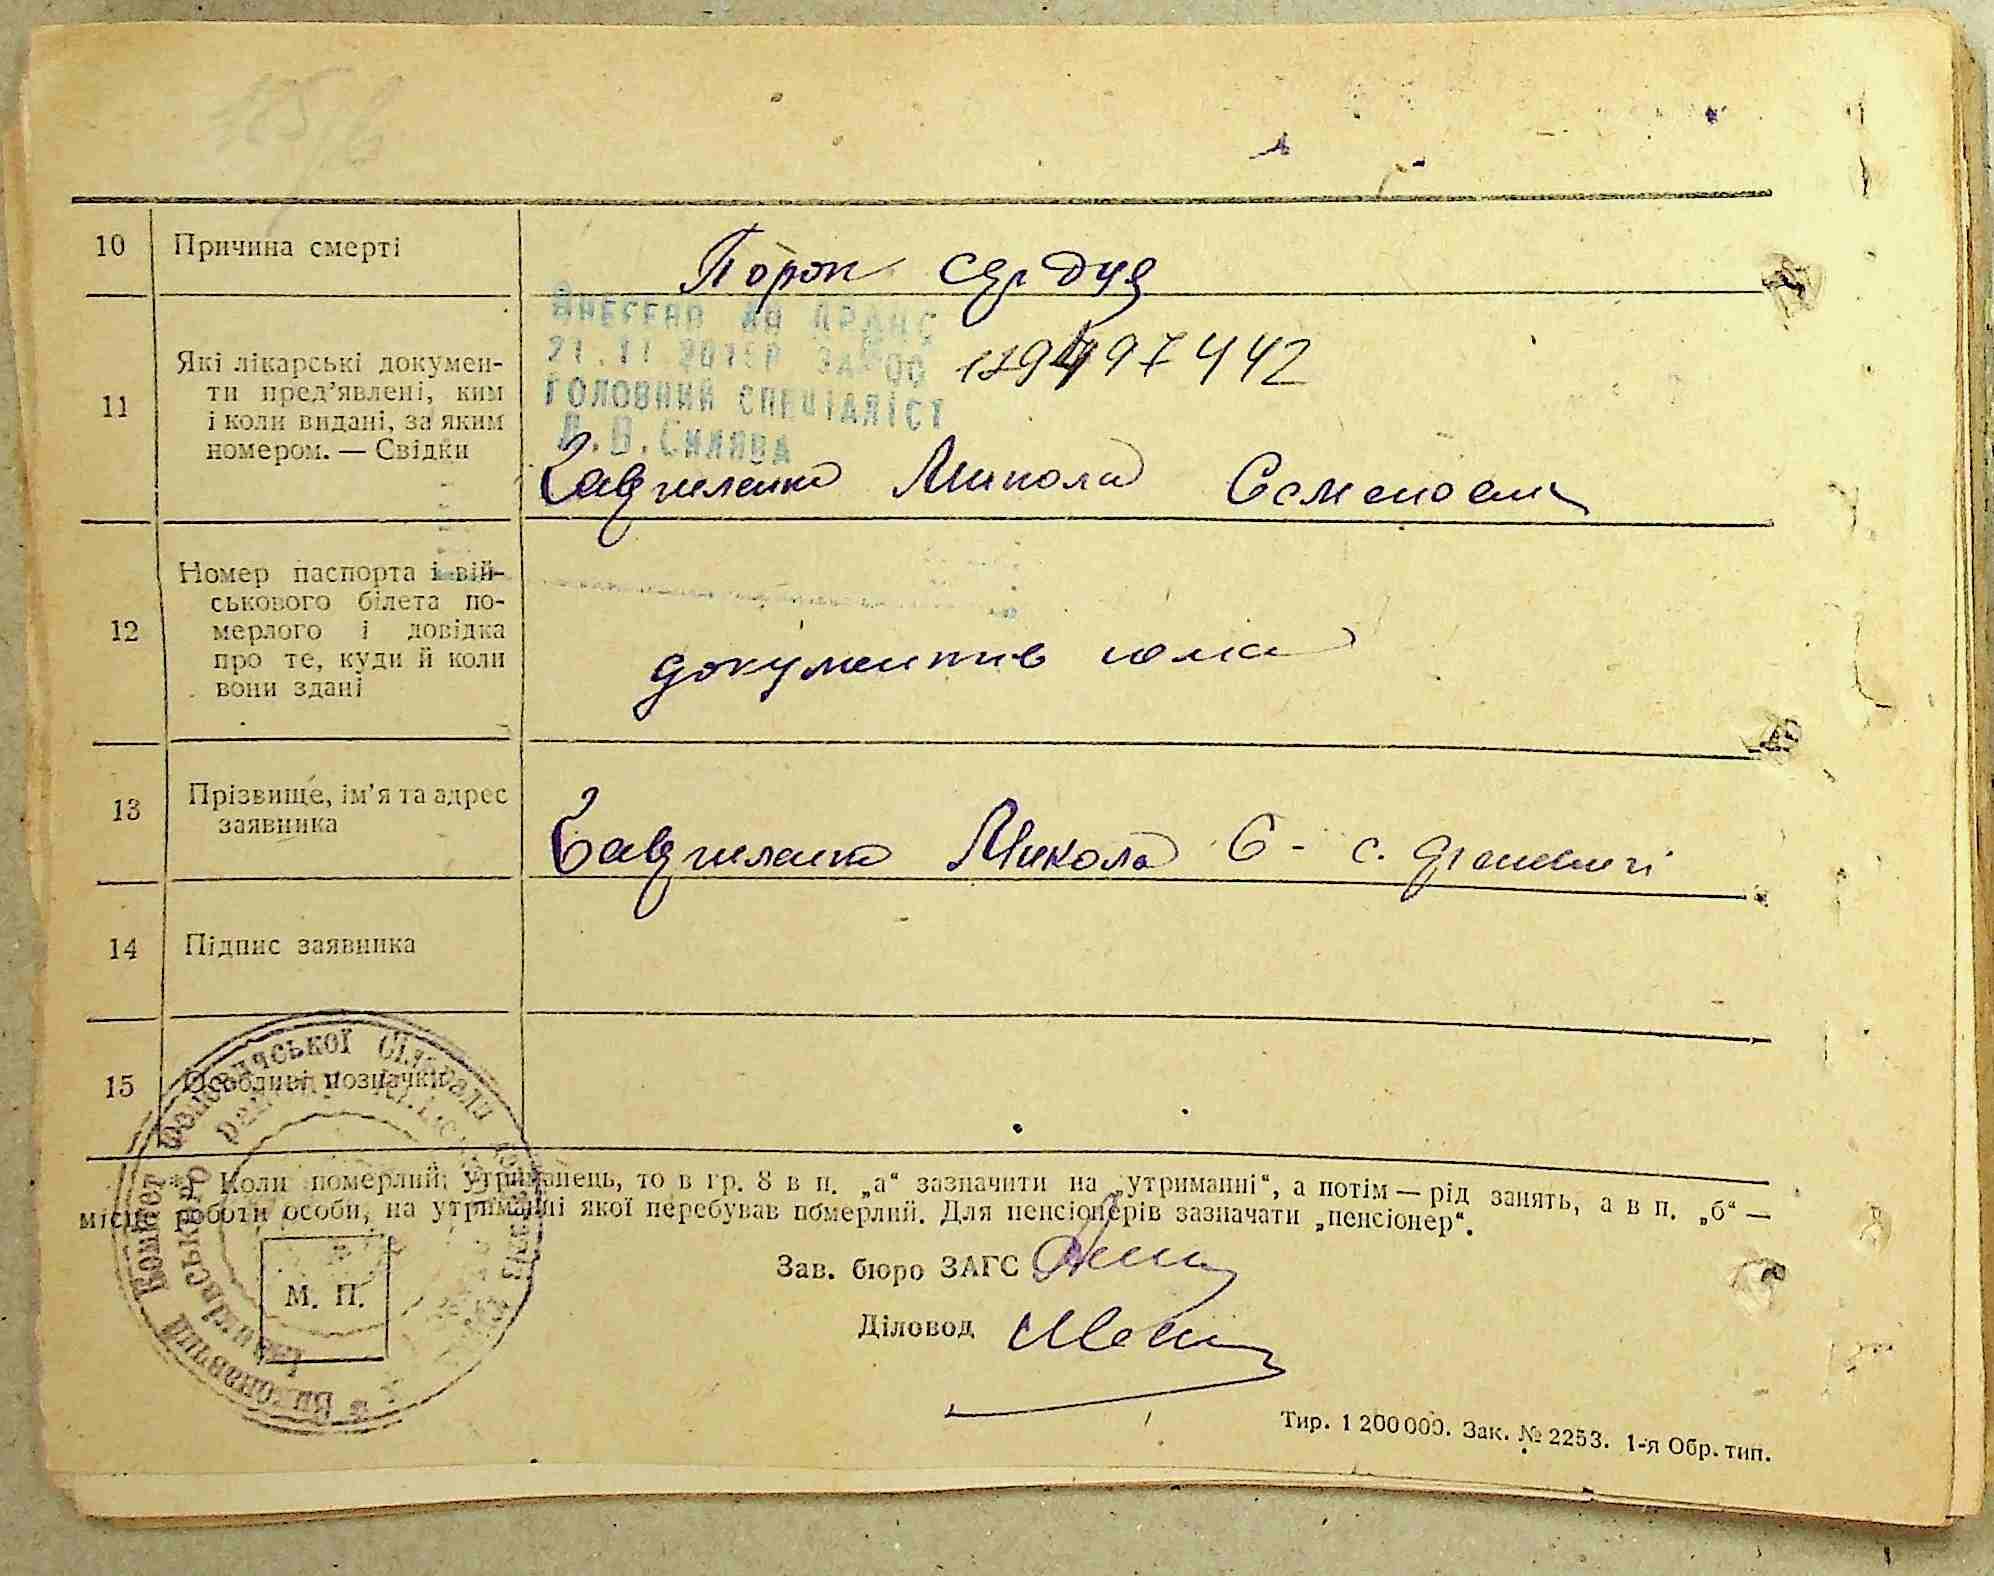 10 Причина смерті
Порок сердця
ВНЕСЕНО ДО ДРАЦС
21.11 ЗА №00
ГОЛОВНИЙ СПЕЦІАЛІСТ
В. СИЛЯВА
497442
11 Які лікарські докумен-
ти пред’явлені, ким
і коли видані, за яким
номером. — Свідки
Гавриленко Микола Семенович
12 Номер паспорта і вій-
ськового білета по-
мерлого і довідка
про те, куди й коли
вони здані
документів нема
13 Прізвище, ім’я та адрес
заявника
Гавриленко Микола С- с.
14 Підпис заявника
15 Особливі позначки
Виконавчий Комітет Сільради
* Коли померлий утриманець, то в гр. 8 в п. „а“ зазначити на „утриманні“, а потім — рід занять, а в п. „б“ —
місце роботи особи, на утриманні якої перебував померлий. Для пенсіонерів зазначати „пенсіонер“.
Зав. бюро ЗАГС
М. П.
Діловод
Тир. 1 200 000. Зак. № 2253. 1-я Обр. тип.